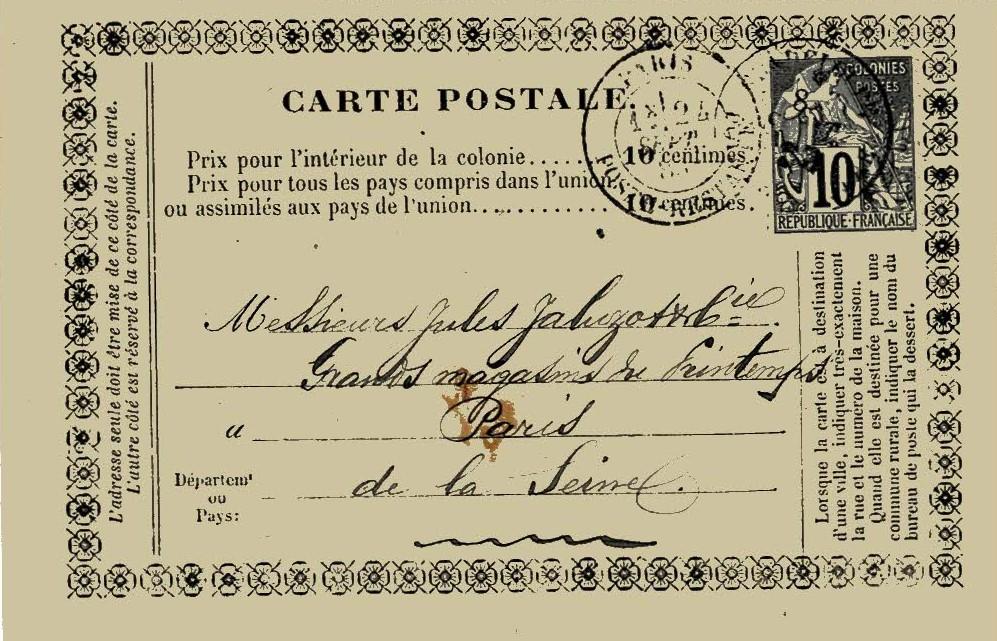 CARTE POSTALE.
Prix pour l'intérieur de la colonie...... 10 centimes.
Prix pour tous les pays compris dans l'union
ou assimilés aux pays de l'union............. 10 centimes.
PARIS
24
SEPT
POSTE RESTANTE
COLONIES
POSTES
10
REPUBLIQUE-FRANÇAISE
L'adresse seule doit être mise de ce côté de la carte.
L'autre côté est réservé à la correspondance.
Messieurs Jules Jaluzot & Cie.
Grands magasins du Printemps
a Paris
Départemt
ou
Pays:
de la Seine.
Lorsque la carte est à destination
d'une ville, indiquer très-exactement
la rue et le numéro de la maison.
Quand elle est destinée pour une
commune rurale, indiquer le nom du
bureau de poste qui la dessert.